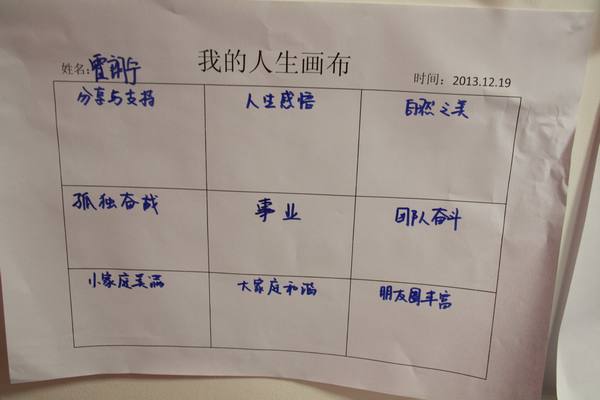 我的人生画布
姓名:
时间: 2013.12.19
分享与支持 人生感悟 自然之美
孤独奋战 事业 团队奋斗
小家庭美满 大家庭和谐 朋友圈丰富